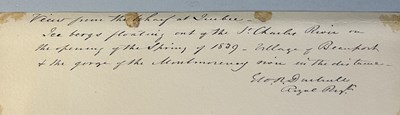 View from the Wharf at Quebec –
Ice bergs floating out of the St. Charles River on
the opening of the Spring of 1839 – Village of Beauport
& the gorge of the Montmorency river in the distance –
Royal Regt.